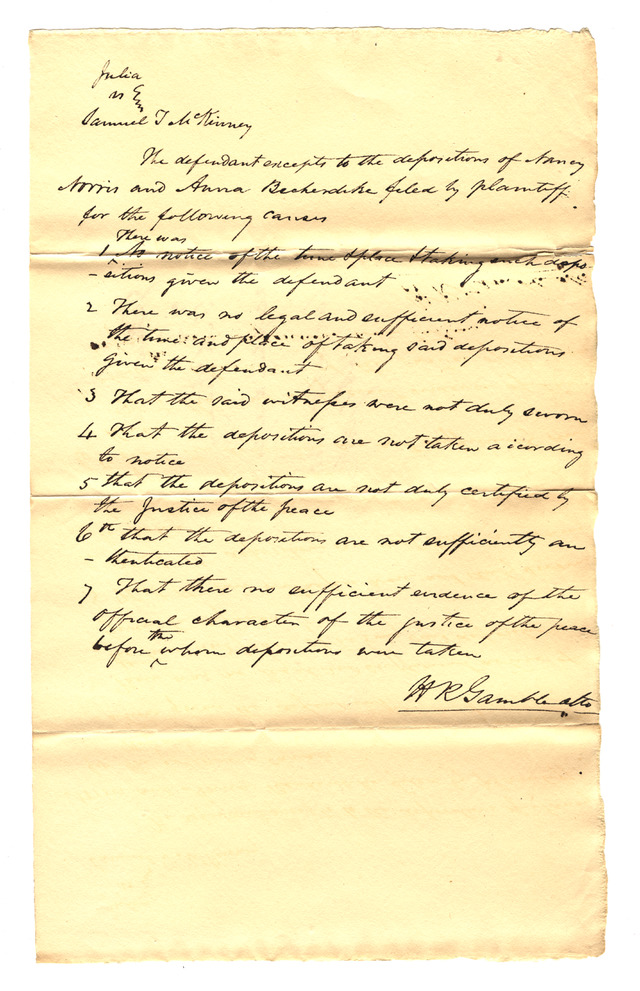 Julia
vs
Samuel T McKinney
The defendant excepts to the depositions of Nancy
Norris and Anna Beckerdike filed by plaintiff
for the following causes
There was
1 No notice of the time & place & taking such depo-
- sitions given the defendant
2 There was no legal and sufficient notice of
the time and place of taking said depositions
given the defendant
3 That the said witnesses were not duly sworn
4 That the depositions are not taken according
to notice
5 that the depositions are not duly certified by
the Justice of the peace
6th that the depositions are not sufficiently au
- thenticated
7 That there no sufficient evidence of the
official character of the justice of the peace
before the whom depositions were taken
H R Gamble atto